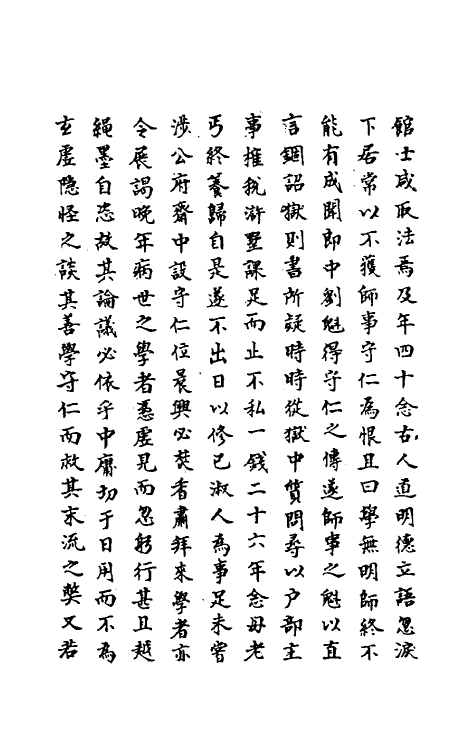 館士咸取法焉及年四十念古人道明德立語忽淚
下居常以不獲師事守仁為恨且曰學無明師終不
能有成聞郎中劉魁得守仁之傳遂師事之魁以直
言錮詔獄則書所疑時時從獄中質問尋以户部主
事搉稅滸墅課足而止不私一錢二十六年念母老
丐終養歸自是遂不出日以修己淑人為事足未嘗
涉公府齋中設守仁位晨興必焚香肅拜來學者亦
令展謁晚年病世之學者慿虛見而忽躬行甚且越
繩墨自恣故其論議必依乎中庸切于日用而不為
玄虛隐怪之談其善學守仁而救其末流之獘又若